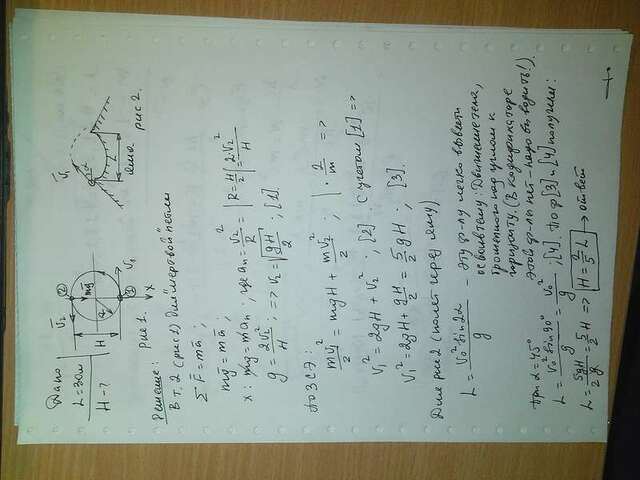 Дано
L=30м
H-?
рис 1.
рис 2.
яма
Решение:
В т.2 (рис 1) Для "мёртвой" петли
ΣF̄=mā;
mḡ=mā;
x: mg=maₙ; где aₙ=V₂²/R = |R=H/2| = 2V₂²/H
g=2V₂²/H; => V₂=√(gH/2); [1].
по ЗСЭ:
mV₁²/2=mgH+mV₂²/2; |·2/m =>
V₁²=2gH+V₂²; [2]. С учётом [1] =>
V₁²=2gH+gH/2=5/2gH; [3].
Для рис 2 (полёт через яму)
L=V₀²sin2α/g - эту ф-лу легко вывести
освоив тему: Движение тела,
брошенного под углом к
горизонту. (В кодификаторе
этой ф-лы нет - надо выводить!).
При α=45°
L=V₀²sin90°/g=V₀²/g; [4]. по ф [3] и [4] получим:
L=5gH/2g=5/2H => H=2/5L → ответ